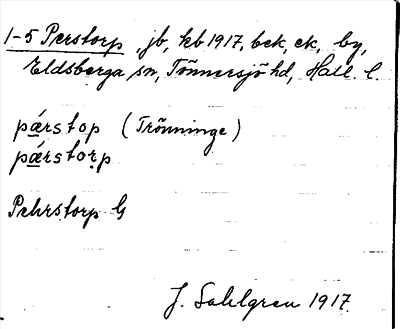 1-5 Perstorp, jb, kb 1917, bek, ek, by,
Eldsberga sn, Tönnersjö hd, Hall. l.
pǽrstop (Trönninge)
pǽrstorp
Pehrstorp G
J. Sahlgren 1917